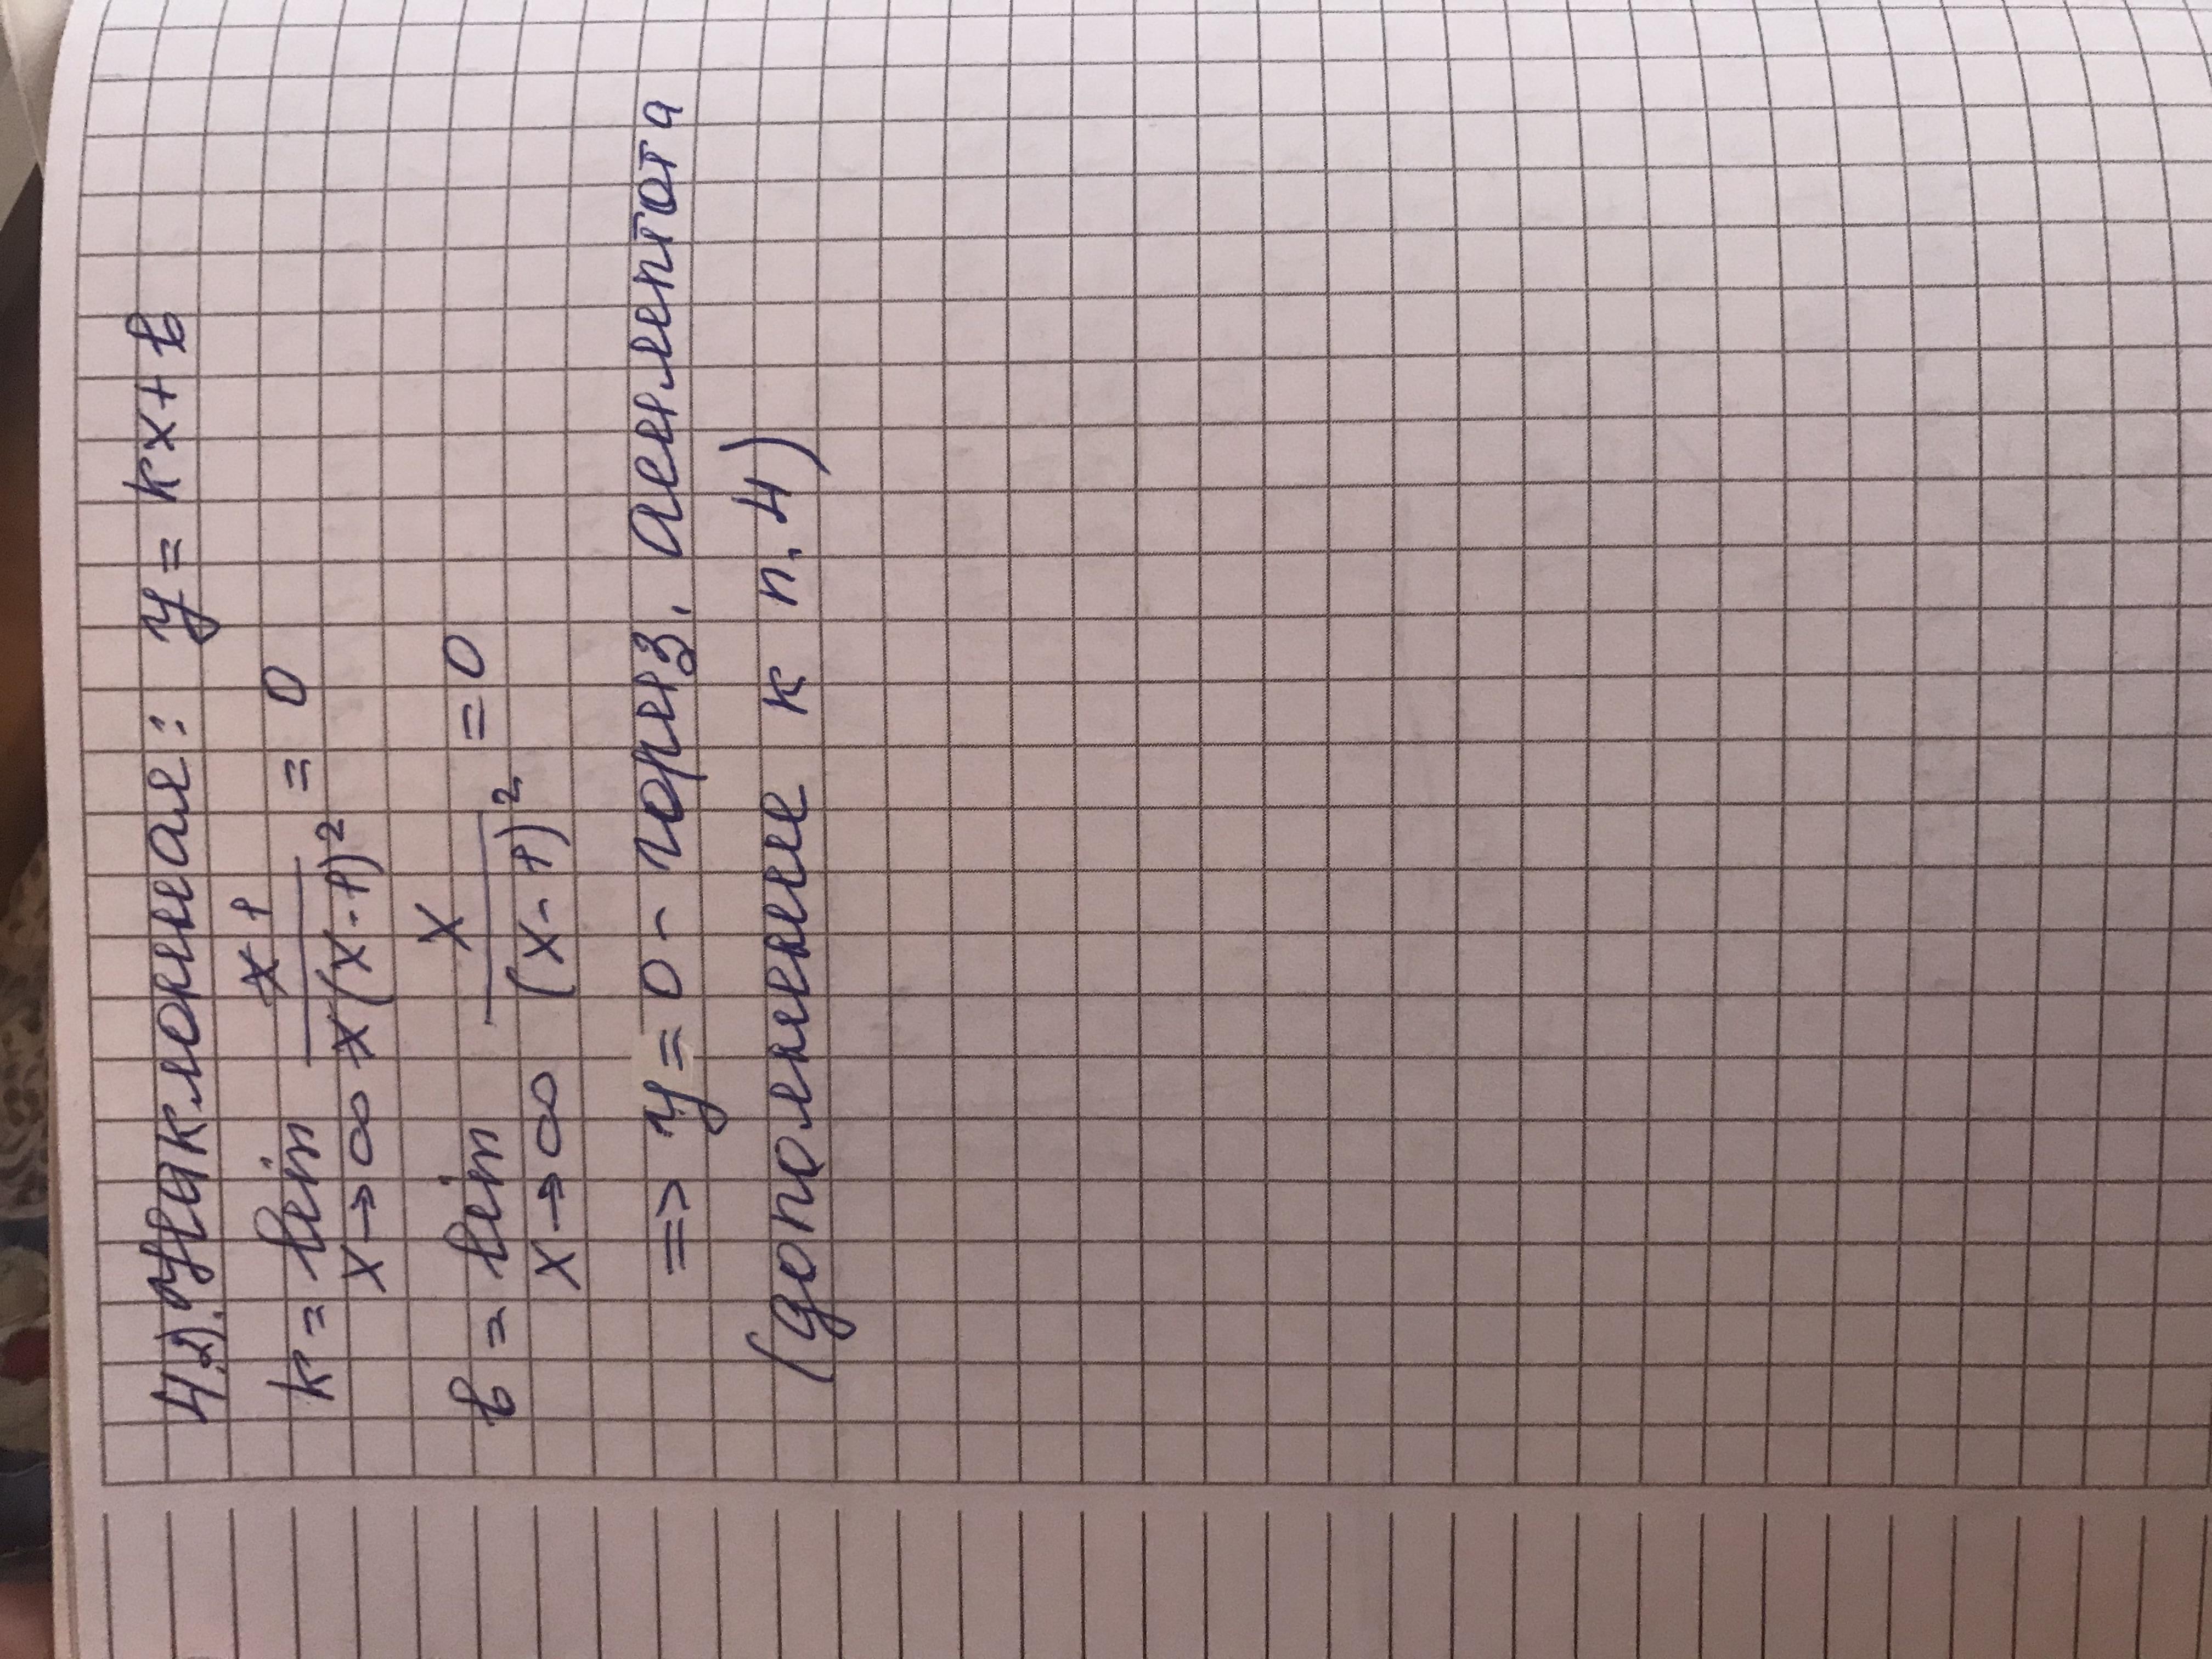 4.2). Наклонная: y = kx + b
k = lim x→∞ x 1 / x(x-1)² = 0
b = lim x→∞ x / (x-1)² = 0
=> y = 0 - гориз. асимптота
(дополнение к п.4)